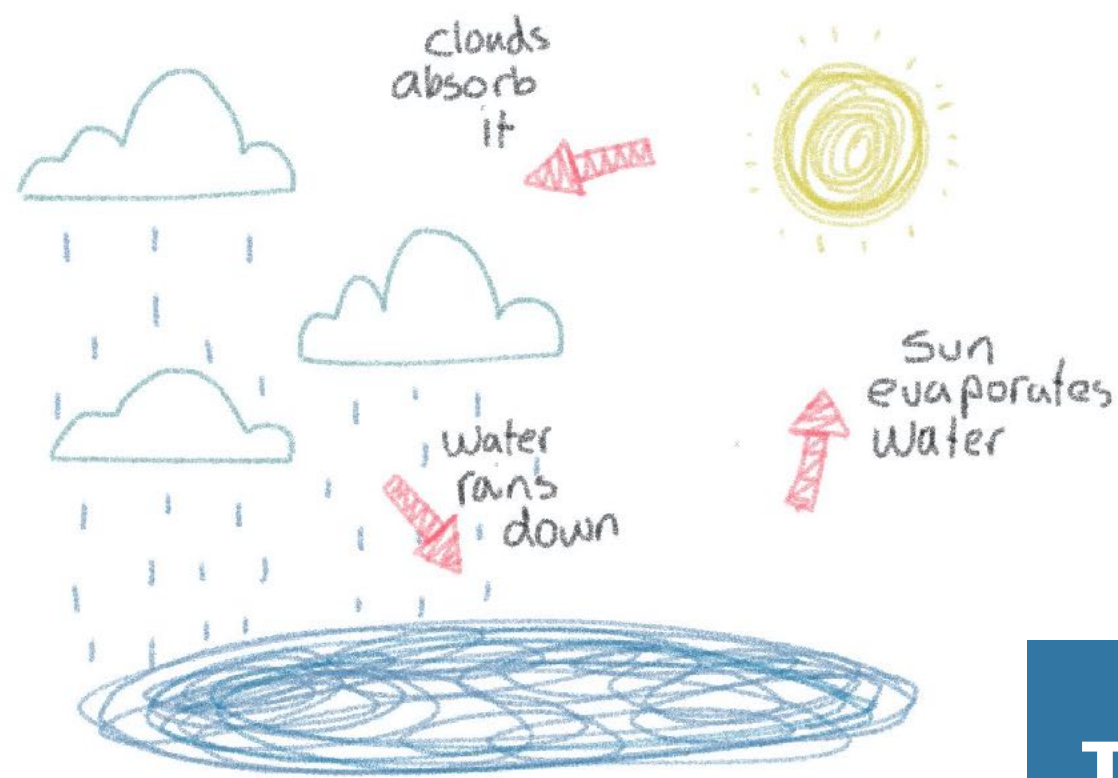 clouds
absorb
it
Sun
evaporates
Water
Water
rains
down